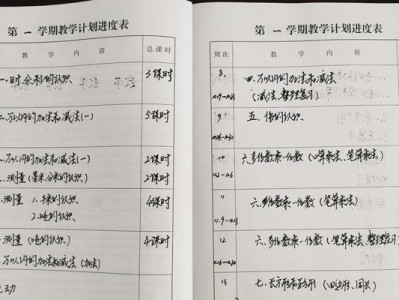 第 一 学期教学计划进度表
教 学 内 容
总课时
一、时、分、秒的认识
3课时
二、万以内的加法和减法(一)
5课时
三、万以内的加法和减法(一)
2课时
三、测量(毫米、分米的认识)
2课时
测量 1.千米的认识
2.吨的认识
4课时
测量(吨的认识)
4课时
四、万以内的加法和减法(加法)
第 一 学期教学计划进度表
周次
教 学 内 容
8
四、万以内的加法和减法
(减法、整理复习)
9
五、倍的认识
10
六、多位数乘一位数(口算乘法、笔算乘法)
11
六、多位数乘一位数(笔算乘法)
12
六、多位数乘一位数(笔算乘法、整理复习)
13
七、长方形和正方形(四边形、周长)